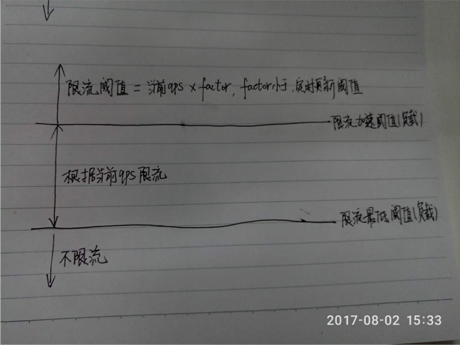 限流阈值 = 当前qps × factor, factor小于1, 定时更新阈值
限流加速阈值(负载)
根据当前qps限流
限流最低阈值(负载)
不限流
2017-08-02 15:33